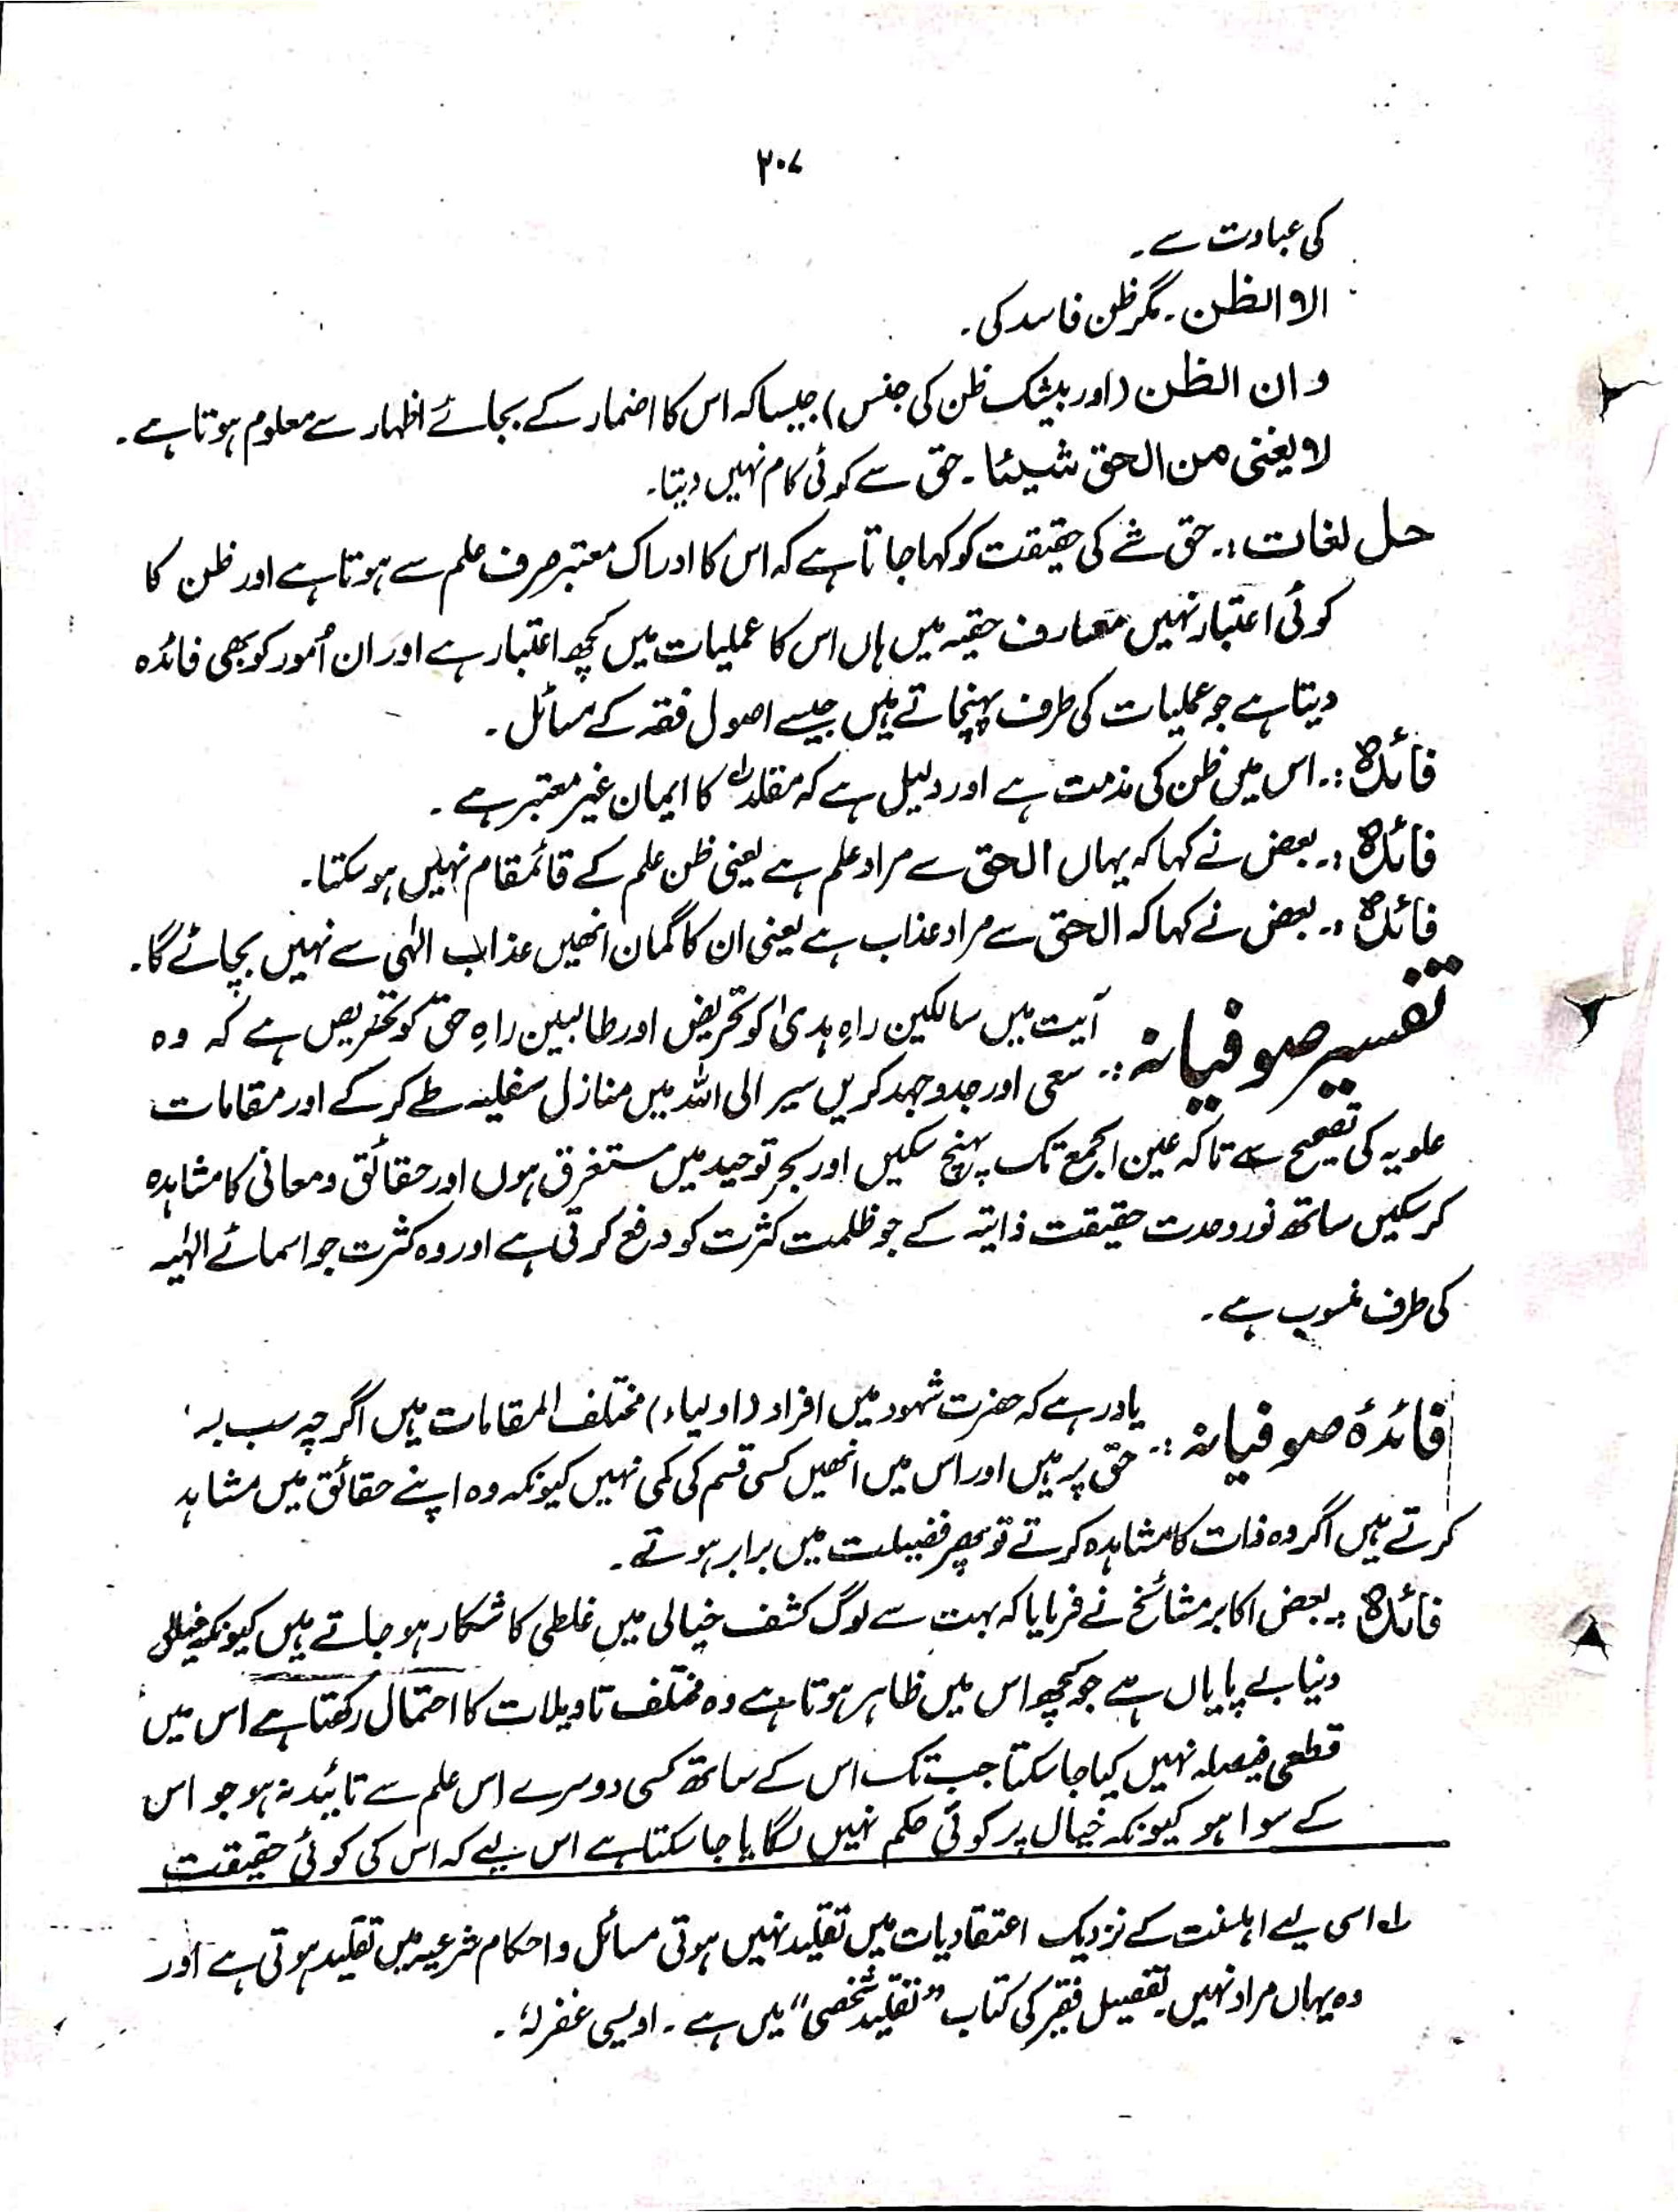 ۲۰۷
کی عبادت سے۔
الا الظن۔ مگر ظن فاسد کی۔
وان الظن (اور بیشک ظن کی جنس) جیسا کہ اس کا اضمار کے بجائے اظہار سے معلوم ہوتا ہے۔
لا یغنی من الحق شیئا۔ حق سے کوئی کام نہیں دیتا۔
حل لغات :۔ حق شے کی حقیقت کو کہا جاتا ہے کہ اس کا ادراک معتبر صرف علم سے ہوتا ہے اور ظن کا
کوئی اعتبار نہیں معارف حقیہ میں ہاں اس کا عملیات میں کچھ اعتبار ہے اور ان اُمور کو بھی فائدہ
دیتا ہے جو عملیات کی طرف پہنچاتے ہیں جیسے اصول فقہ کے مسائل۔
فائدہ :۔ اس میں ظن کی مذمت ہے اور دلیل ہے کہ مقلد لہ کا ایمان غیر معتبر ہے۔
فائدہ :۔ بعض نے کہا کہ یہاں الحق سے مراد علم ہے یعنی ظن علم کے قائمقام نہیں ہو سکتا۔
فائدہ :۔ بعض نے کہا کہ الحق سے مراد عذاب ہے یعنی ان کا گمان انھیں عذاب الٰہی سے نہیں بچائے گا۔
تفسیر صوفیانہ :۔ آیت میں سالکین راہِ ہدیٰ کو تحریض اور طالبین راہِ حق کو تحریص ہے کہ وہ
سعی اور جدوجہد کریں سیر الی اللہ میں منازل سفلیہ طے کر کے اور مقامات
علویہ کی تصحیح سے تاکہ عین الجمع تک پہنچ سکیں اور بحر توحید میں مستغرق ہوں اور حقائق و معانی کا مشاہدہ
کر سکیں ساتھ نور وحدت حقیقت ذاتیہ کے جو ظلمت کثرت کو دفع کرتی ہے اور وہ کثرت جو اسمائے الٰہیہ
کی طرف منسوب ہے۔
فائدۂ صوفیانہ :۔ یاد رہے کہ حضرت شہود میں افراد (اولیاء) مختلف المقامات ہیں اگرچہ سب بہ
حق پر ہیں اور اس میں انھیں کسی قسم کی کمی نہیں کیونکہ وہ اپنے حقائق میں مشاہد
کرتے ہیں اگر وہ ذات کا مشاہدہ کرتے تو پھر فضیلت میں برابر ہوتے۔
فائدہ :۔ بعض اکابر مشائخ نے فرمایا کہ بہت سے لوگ کشف خیالی میں غلطی کا شکار ہو جاتے ہیں کیونکہ خیالی
دنیا بے پایاں ہے جو کچھ اس میں ظاہر ہوتا ہے وہ مختلف تاویلات کا احتمال رکھتا ہے اس میں
قطعی فیصلہ نہیں کیا جا سکتا جب تک اس کے ساتھ کسی دوسرے اس علم سے تائید نہ ہو جو اس
کے سوا ہو کیونکہ خیال پر کوئی حکم نہیں لگایا جا سکتا ہے اس لیے کہ اس کی کوئی حقیقت
لہ اسی لیے اہلسنت کے نزدیک اعتقادیات میں تقلید نہیں ہوتی مسائل و احکام شرعیہ میں تقلید ہوتی ہے اور
وہ یہاں مراد نہیں۔ تفصیل فقیر کی کتاب "تقلید شخصی" میں ہے۔ اویسی غفرلہٗ۔